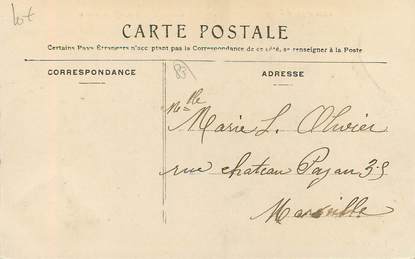 lot
CARTE POSTALE
Certains Pays Étrangers n'acceptant pas la Correspondance de ce côté, se renseigner à la Poste
CORRESPONDANCE
ADRESSE
Melle
Marie L. Olivier
rue chateau Payan 35
Marseille